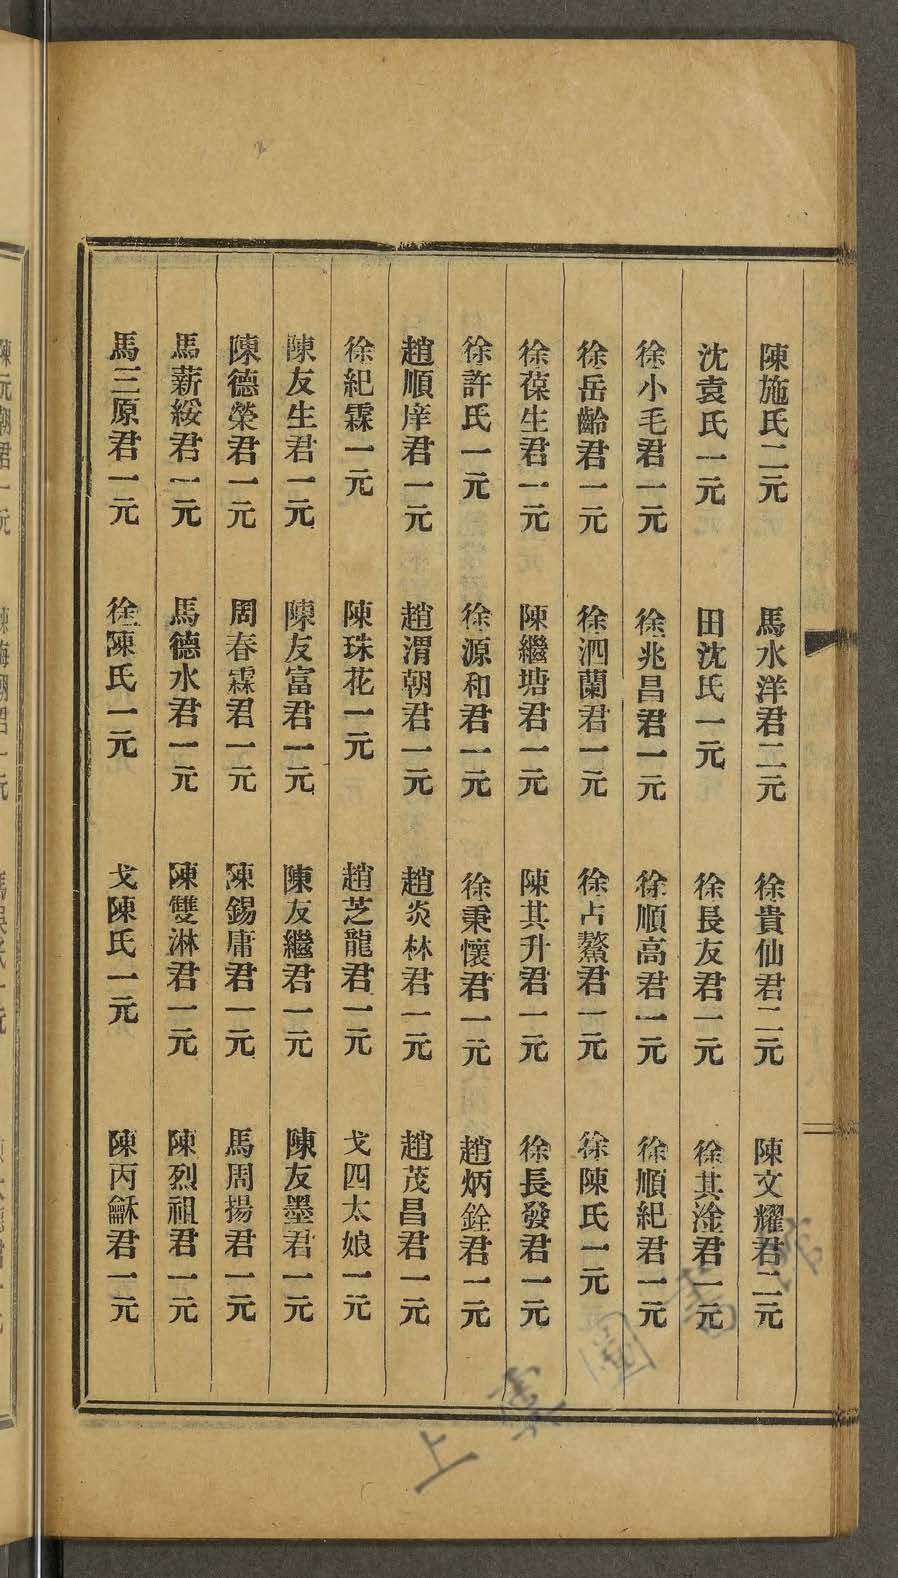 陳施氏二元　馬水洋君二元　徐貴仙君二元　陳文耀君二元
沈袁氏一元　田沈氏一元　徐長友君一元　徐其淦君一元
徐小毛君一元　徐兆昌君一元　徐順高君一元　徐順紀君一元
徐岳齡君一元　徐泗蘭君一元　徐占鰲君一元　徐陳氏一元
徐葆生君一元　陳繼塘君一元　陳其升君一元　徐長發君一元
徐許氏一元　徐源和君一元　徐秉懷君一元　趙炳銓君一元
趙順庠君一元　趙渭朝君一元　趙炎林君一元　趙茂昌君一元
徐紀霖一元　陳珠花一元　趙芝龍君一元　戈四太娘一元
陳友生君一元　陳友富君一元　陳友繼君一元　陳友墨君一元
陳德榮君一元　周春霖君一元　陳錫庸君一元　馬周揚君一元
馬薪綏君一元　馬德水君一元　陳雙淋君一元　陳烈祖君一元
馬三原君一元　徐陳氏一元　戈陳氏一元　陳丙龢君一元
上虞圖書館